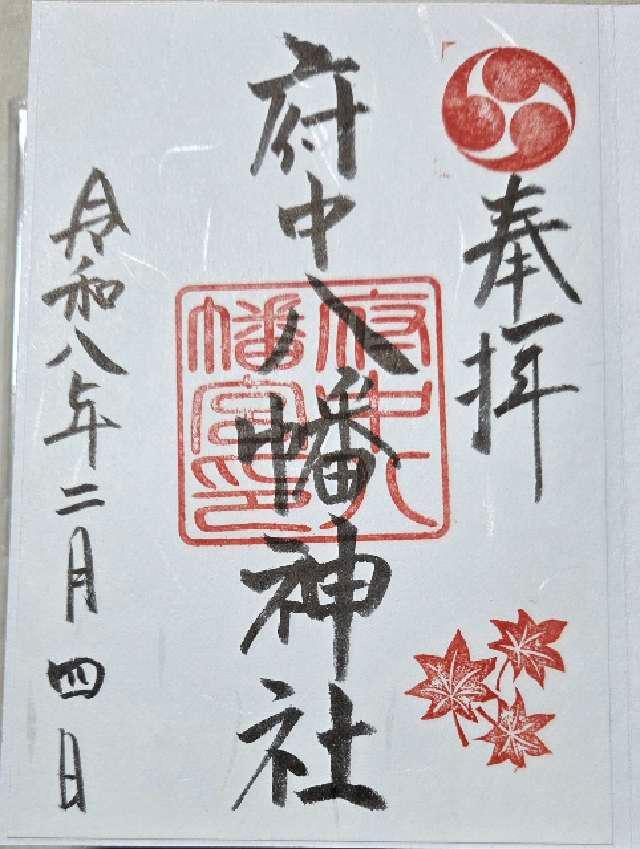 奉拝
府中八幡神社
府中八
幡宮印
令和八年二月四日